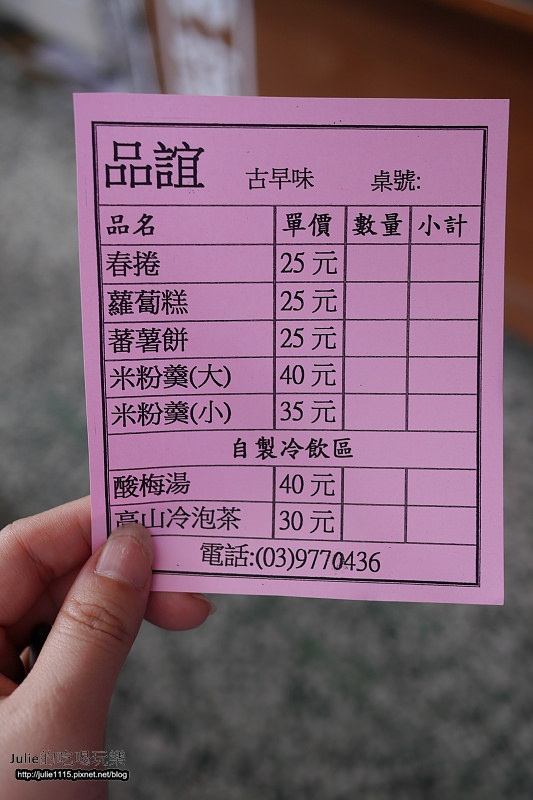 品誼 古早味 桌號:
品名 單價 數量 小計
春捲 25 元
蘿蔔糕 25 元
蕃薯餅 25 元
米粉羹(大) 40 元
米粉羹(小) 35 元
自製冷飲區
酸梅湯 40 元
高山冷泡茶 30 元
電話:(03)9770436
Julie的吃喝玩樂
http://julie1115.pixnet.net/blog